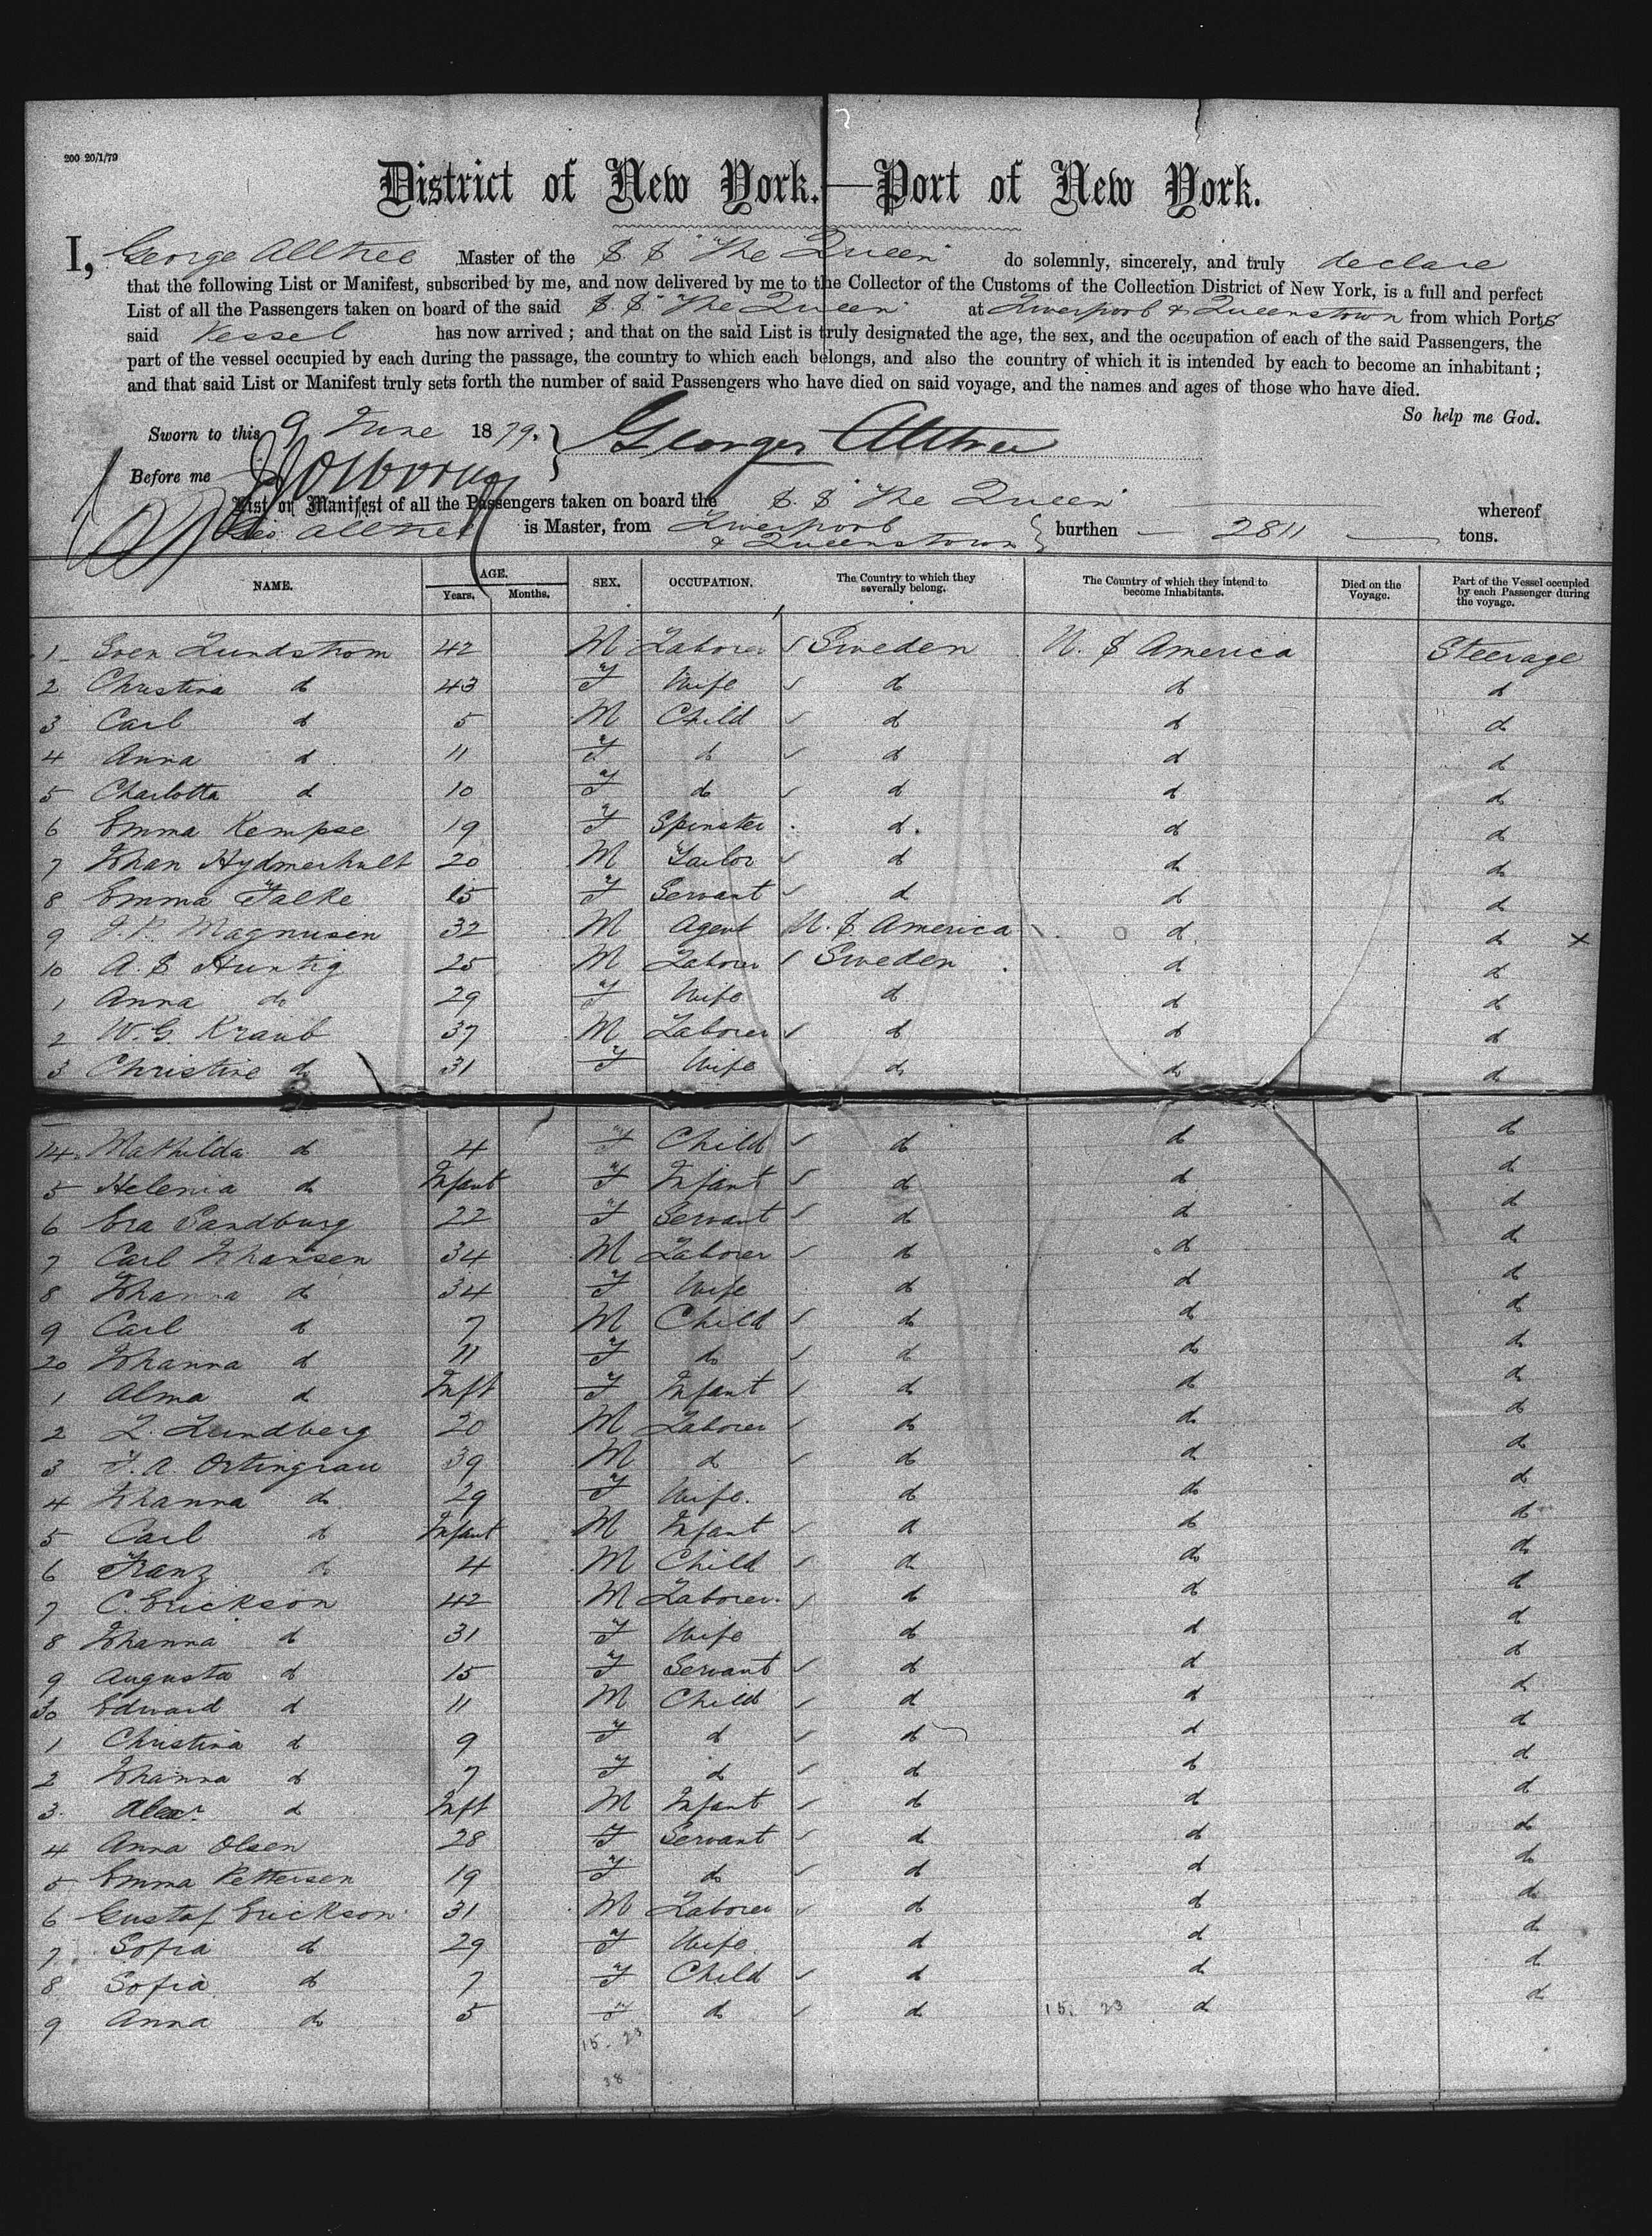 200 20/1/79
District of New York.—Port of New York.
I, George Alltree Master of the S. S. "The Queen" do solemnly, sincerely, and truly declare
that the following List or Manifest, subscribed by me, and now delivered by me to the Collector of the Customs of the Collection District of New York, is a full and perfect
List of all the Passengers taken on board of the said S. S. "The Queen" at Liverpool & Queenstown from which Ports
said Vessel has now arrived; and that on the said List is truly designated the age, the sex, and the occupation of each of the said Passengers, the
part of the vessel occupied by each during the passage, the country to which each belongs, and also the country of which it is intended by each to become an inhabitant;
and that said List or Manifest truly sets forth the number of said Passengers who have died on said voyage, and the names and ages of those who have died.
So help me God.
Sworn to this 9 June 1879. } George Alltree
Before me
List or Manifest of all the Passengers taken on board the S. S. "The Queen" whereof
Geo Alltree is Master, from Liverpool & Queenstown } burthen — 2811 — tons.
NAME. AGE. Years. Months. SEX. OCCUPATION. The Country to which they severally belong. The Country of which they intend to become Inhabitants. Died on the Voyage. Part of the Vessel occupied by each Passenger during the voyage.
1 Sven Lundstrom 42 M Laborer Sweden U. S America Steerage
2 Christina do 43 F Wife do do do
3 Carl do 5 M Child do do do
4 Anna do 11 F do do do do
5 Charlotta do 10 F do do do do
6 Emma Kempse 19 F Spinster do do do
7 Johan Hydmerhult 20 M Tailor do do do
8 Emma Falke 15 F Servant do do do
9 J. P. Magnusen 32 M Agent U. S. America do do X
10 A. S Huntig 25 M Laborer Sweden do do
1 Anna do 29 F Wife do do do
2 W. G. Kraub 37 M Laborer do do do
3 Christine do 31 F Wife do do do
14 Mathilda do 4 F Child do do do
5 Helenia do Infant F Infant do do do
6 Eva Sandburg 22 F Servant do do do
7 Carl Johansen 34 M Laborer do do do
8 Johanna do 34 F Wife do do do
9 Carl do 7 M Child do do do
20 Johanna do 11 F do do do do
1 Alma do Inft F Infant do do do
2 L. Lundberg 20 M Laborer do do do
3 F. A. Ortingrau 39 M do do do do
4 Johanna do 29 F Wife. do do do
5 Carl do Infant M Infant do do do
6 Franz do 4 M Child do do do
7 C. Erickson 42 M Laborer do do do
8 Johanna do 31 F Wife do do do
9 Augusta do 15 F Servant do do do
30 Edward do 11 M Child do do do
1 Christina do 9 F do do do do
2 Johanna do 7 F do do do do
3 Alexr do Inft M Infant do do do
4 Anna Olsen 28 F Servant do do do
5 Emma Pettersen 19 F do do do do
6 Gustaf Erickson 31 M Laborer do do do
7 Sofia do 29 F Wife do do do
8 Sofia do 7 F Child do do do
9 Anna do 5 F do do 15. 23 do do
15. 23
38